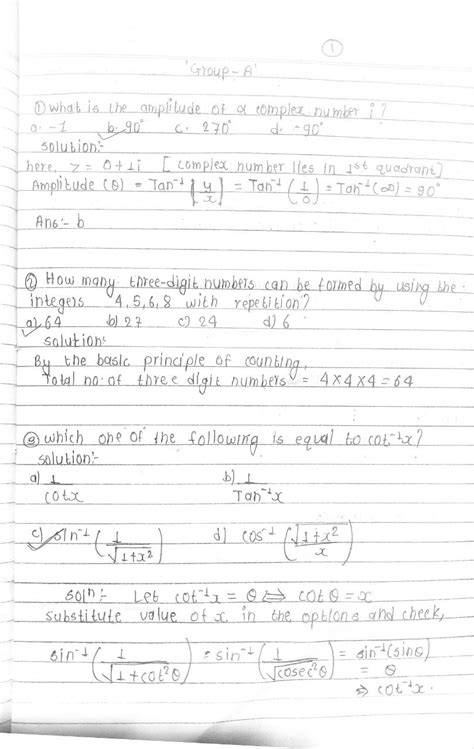 1
'Group-A'
① What is the amplitude of a complex number i?
a. -1 b. 90° c. 270° d. -90°
solution:-
here, z = 0+1i [complex number lies in 1st quadrant]
Amplitude (θ) = Tan⁻¹ [y/x] = Tan⁻¹ (1/0) = Tan⁻¹(∞) = 90°
Ans:- b
② How many three-digit numbers can be formed by using the
integers 4,5,6,8 with repetition?
a) 64 b) 27 c) 24 d) 6
solution:
By the basic principle of counting,
Total no. of three digit numbers = 4×4×4 = 64
③ which one of the following is equal to cot⁻¹x?
solution:-
a) 1/cotx b) 1/Tan⁻¹x
c) sin⁻¹ (1/√(1+x²)) d) cos⁻¹ (√(1+x²)/x)
solⁿ:- Let cot⁻¹x = θ ⇔ cotθ = x
substitute value of x in the options and check,
sin⁻¹ (1/√(1+cot²θ)) = sin⁻¹ (1/√(cosec²θ)) = sin⁻¹(sinθ)
= θ
⇒ cot⁻¹x.